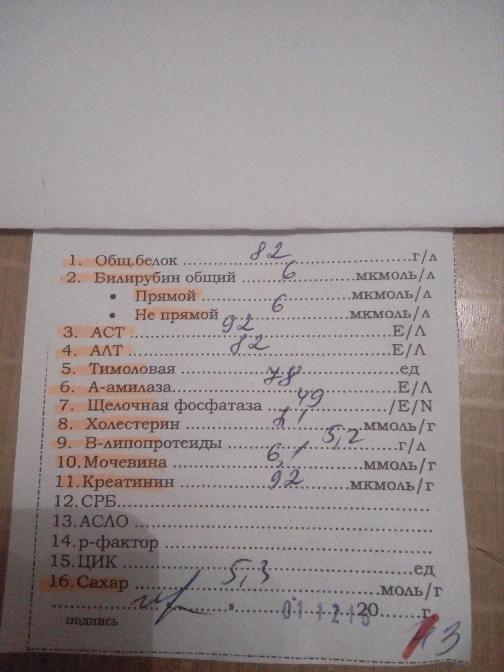 1. Общ.белок ..... 82 ..... г/л
2. Билирубин общий ..... 6 ..... мкмоль/л
• Прямой ..... мкмоль/л
• Не прямой ..... 6 ..... мкмоль/л
3. АСТ ..... 92 ..... Е/Л
4. АЛТ ..... 82 ..... Е/Л
5. Тимоловая ..... ед
6. А-амилаза ..... 78 ..... Е/Л
7. Щелочная фосфатаза ..... 49 ..... /Е/N
8. Холестерин ..... ммоль/г
9. В-липопротеиды ..... 5,2 ..... г/л
10. Мочевина ..... 6,1 ..... ммоль/г
11. Креатинин ..... 92 ..... мкмоль/г
12. СРБ
13. АСЛО
14. р-фактор
15. ЦИК ..... ед
16. Сахар ..... 5,3 ..... моль/г
20 ..... г.
подпись